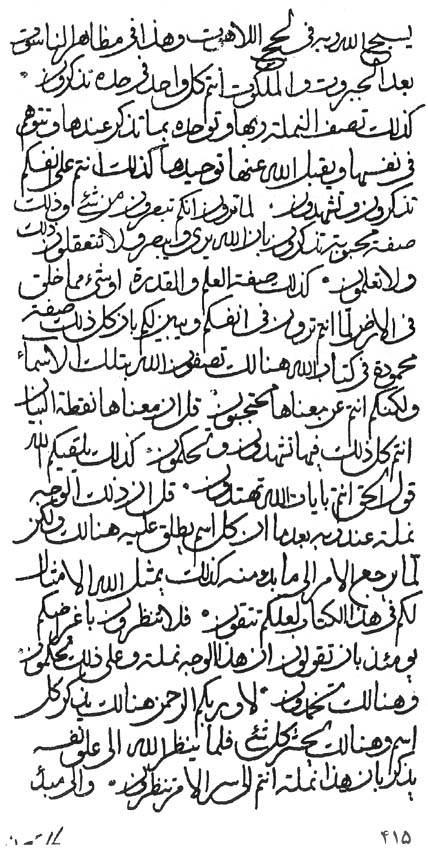 يسبح الله ربه في لجج اللاهوت وهذا في مظاهر الناسوت
بعد الجبروت والملكوت انتم كل واحد في حده تذكرون
كذلك تصف النملة ربها وتوحده بما تذكر عندها وتتوهم
في نفسها ويقبل الله عنها توحيدها كذلك انتم على انفسكم
تذكرون وتشهدون لما ترون انكم تبصرون من شئ وذلك
صفة محبوبة تذكرون بان الله يرى ويبصر ولا تتعقلون ذلك
ولا تعلمون كذلك صفة العلم والقدرة او شئ مما خلق
في الارض لما انتم ترون في انفسكم ويبين لكم بان كل ذلك صفة
محمودة في كتاب الله هنالك تصفون الله بتلك الاسماء
ولكنكم انتم عن معناها محتجبون قل ان معناها نقطة البيان
انتم كل ذلك فيها تشهدون وتحكمون كذلك يلقيكم الله
قول الحق انتم بايات الله تهتدون قل ان ذلك الوجه
نملة عند ربه بعدما ان كل اسم يطلق عليه هنالك ولكن
لما يرجع الامر الى ما بدء منه كذلك يمثل الله الامثال
لكم في هذا الكتاب لعلكم تتقون فلا تنظرون باغراضكم
يومئذ بان تقولون ان هذا الوجه نملة وعلى ذلك تحكمون
وهنالك تحمدون لا وربكم الرحمن هنالك يذكر كل
اسم وهنالك يحشر كل شئ فلما ينظر الله الى علو نفسه
يذكر بان هذا نملة انتم الى سر الامر تنظرون والى مبدأ
۴۱۵